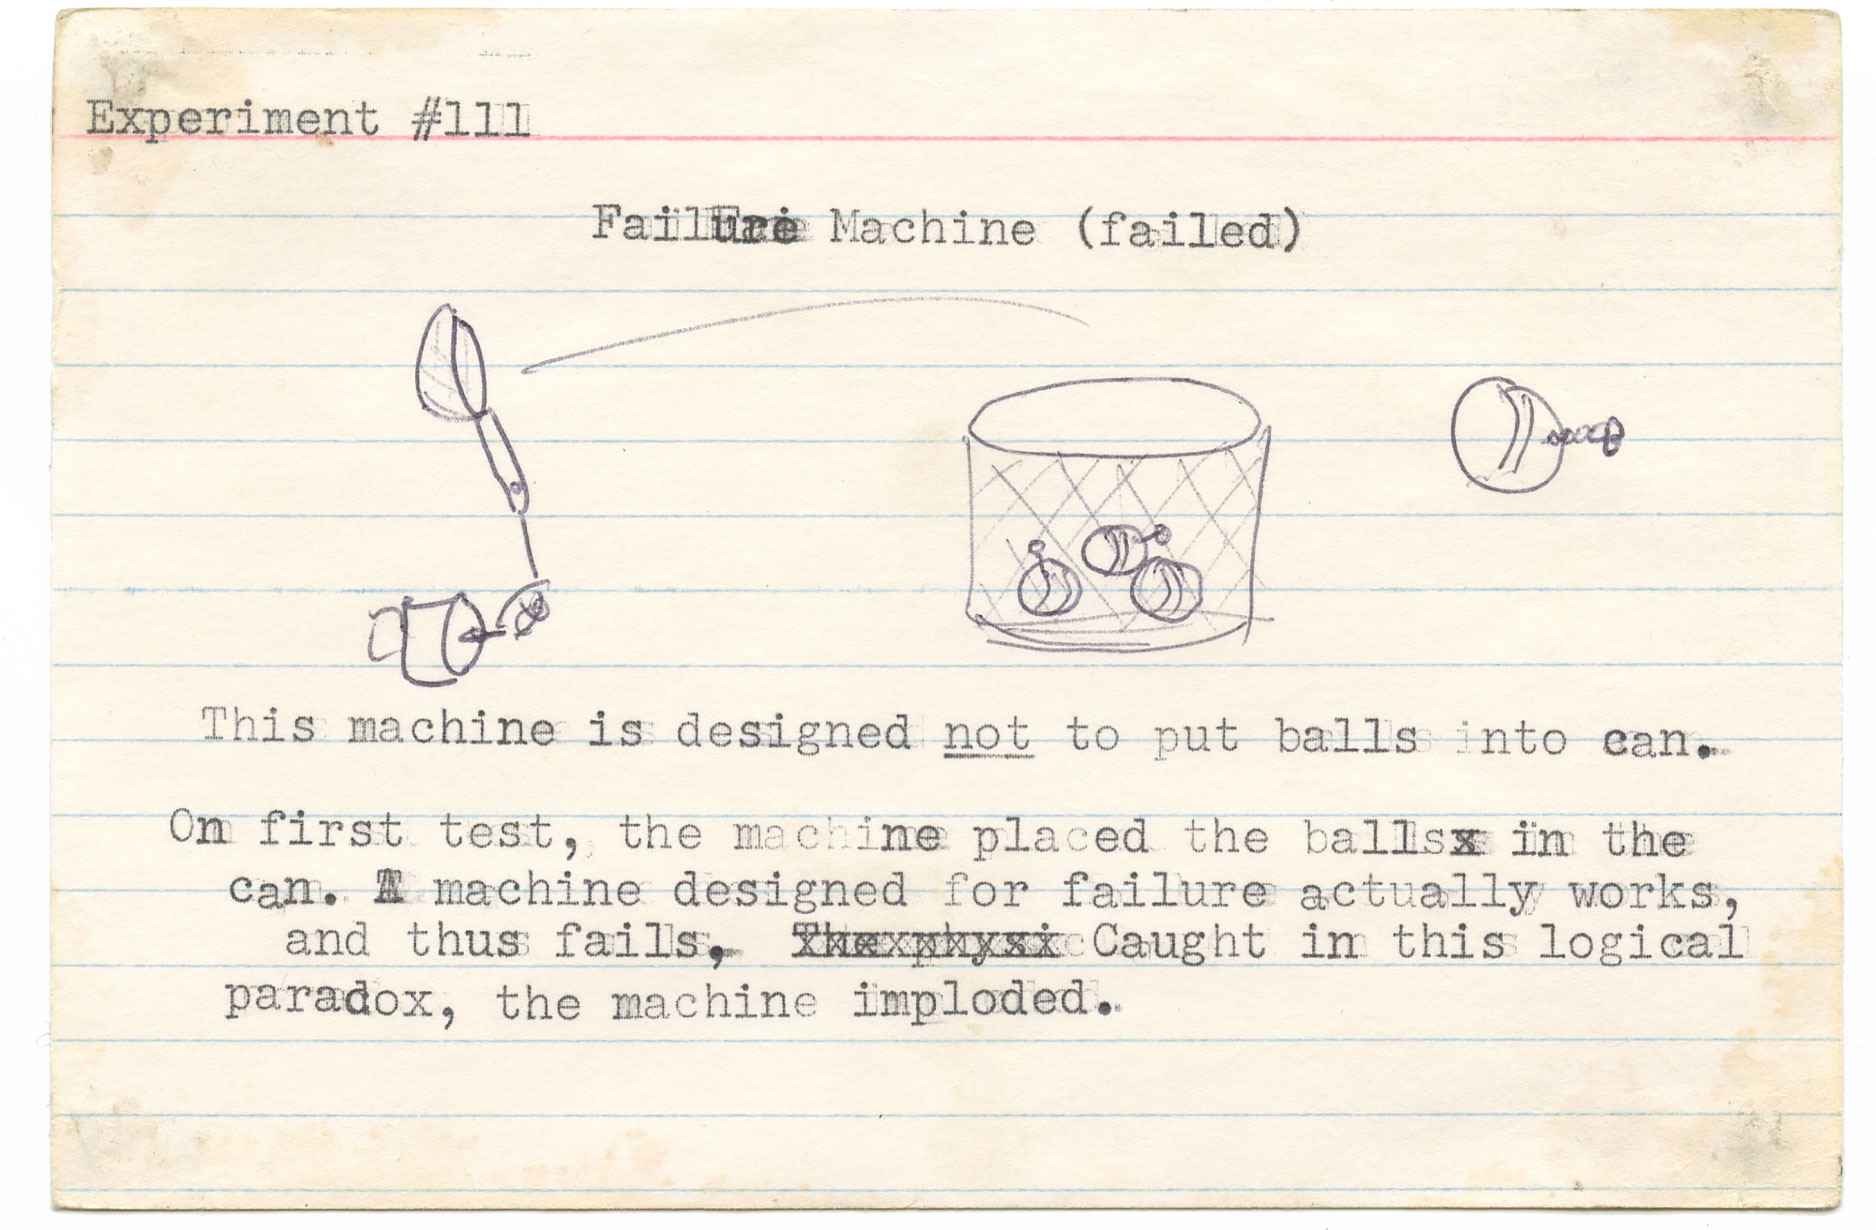 Experiment #111
Failure Machine (failed)
This machine is designed not to put balls into can.
On first test, the machine placed the ballsx in the
can. A machine designed for failure actually works,
and thus fails, Caught in this logical
paradox, the machine imploded.